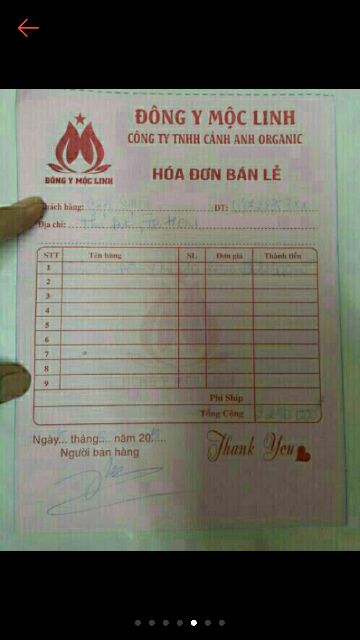 ĐÔNG Y MỘC LINH
CÔNG TY TNHH CẢNH ANH ORGANIC
ĐÔNG Y MỘC LINH
HÓA ĐƠN BÁN LẺ
Khách hàng: ĐT:
Địa chỉ:
STT Tên hàng SL Đơn giá Thành tiền
1
2
3
4
5
6
7
8
9
Phí Ship
Tổng Cộng
Ngày... tháng... năm 20
Thank You
Người bán hàng